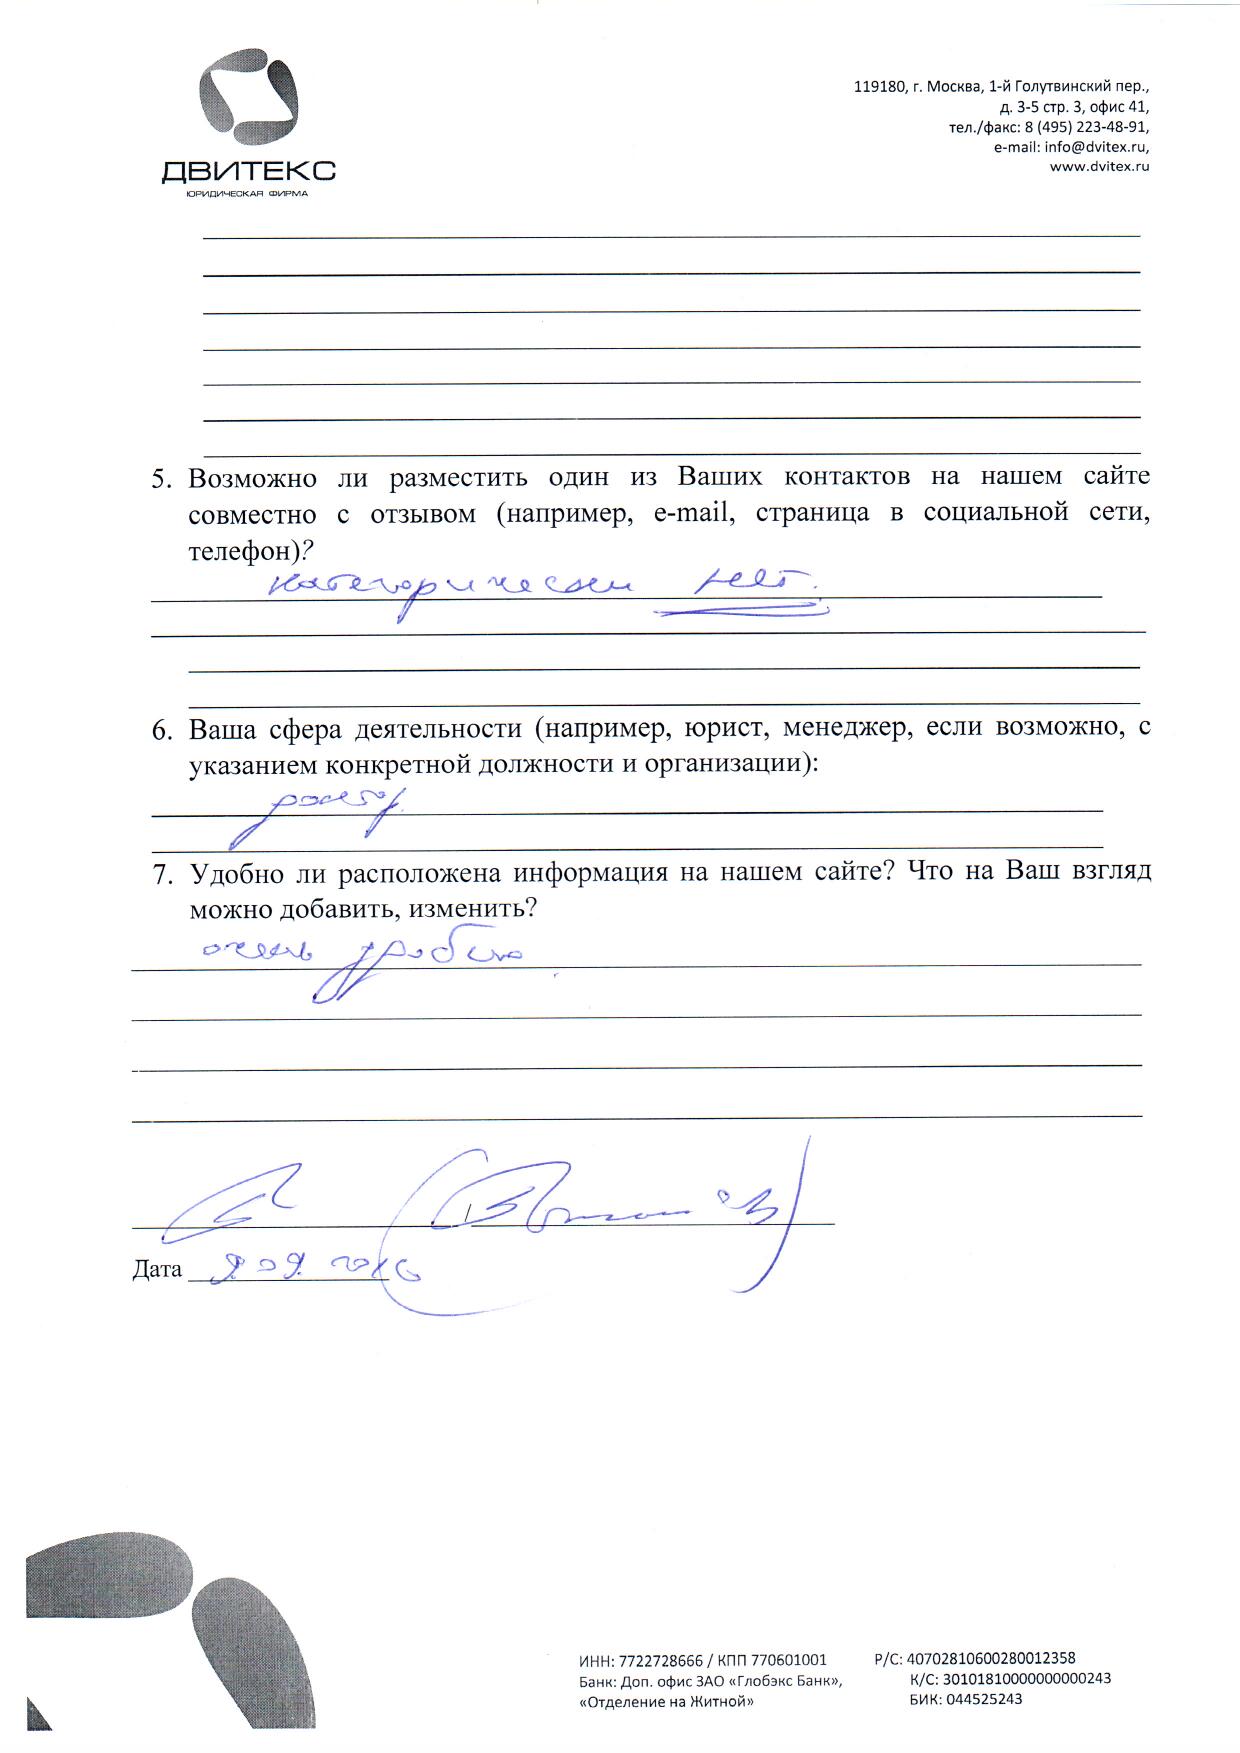 ДВИТЕКС
ЮРИДИЧЕСКАЯ ФИРМА
119180, г. Москва, 1-й Голутвинский пер.,
д. 3-5 стр. 3, офис 41,
тел./факс: 8 (495) 223-48-91,
e-mail: info@dvitex.ru,
www.dvitex.ru
5. Возможно ли разместить один из Ваших контактов на нашем сайте
совместно с отзывом (например, e-mail, страница в социальной сети,
телефон)?
категорически нет.
6. Ваша сфера деятельности (например, юрист, менеджер, если возможно, с
указанием конкретной должности и организации):
7. Удобно ли расположена информация на нашем сайте? Что на Ваш взгляд
можно добавить, изменить?
очень удобно
Дата 9.09.2016
ИНН: 7722728666 / КПП 770601001
Банк: Доп. офис ЗАО «Глобэкс Банк»,
«Отделение на Житной»
Р/С: 40702810600280012358
К/С: 30101810000000000243
БИК: 044525243